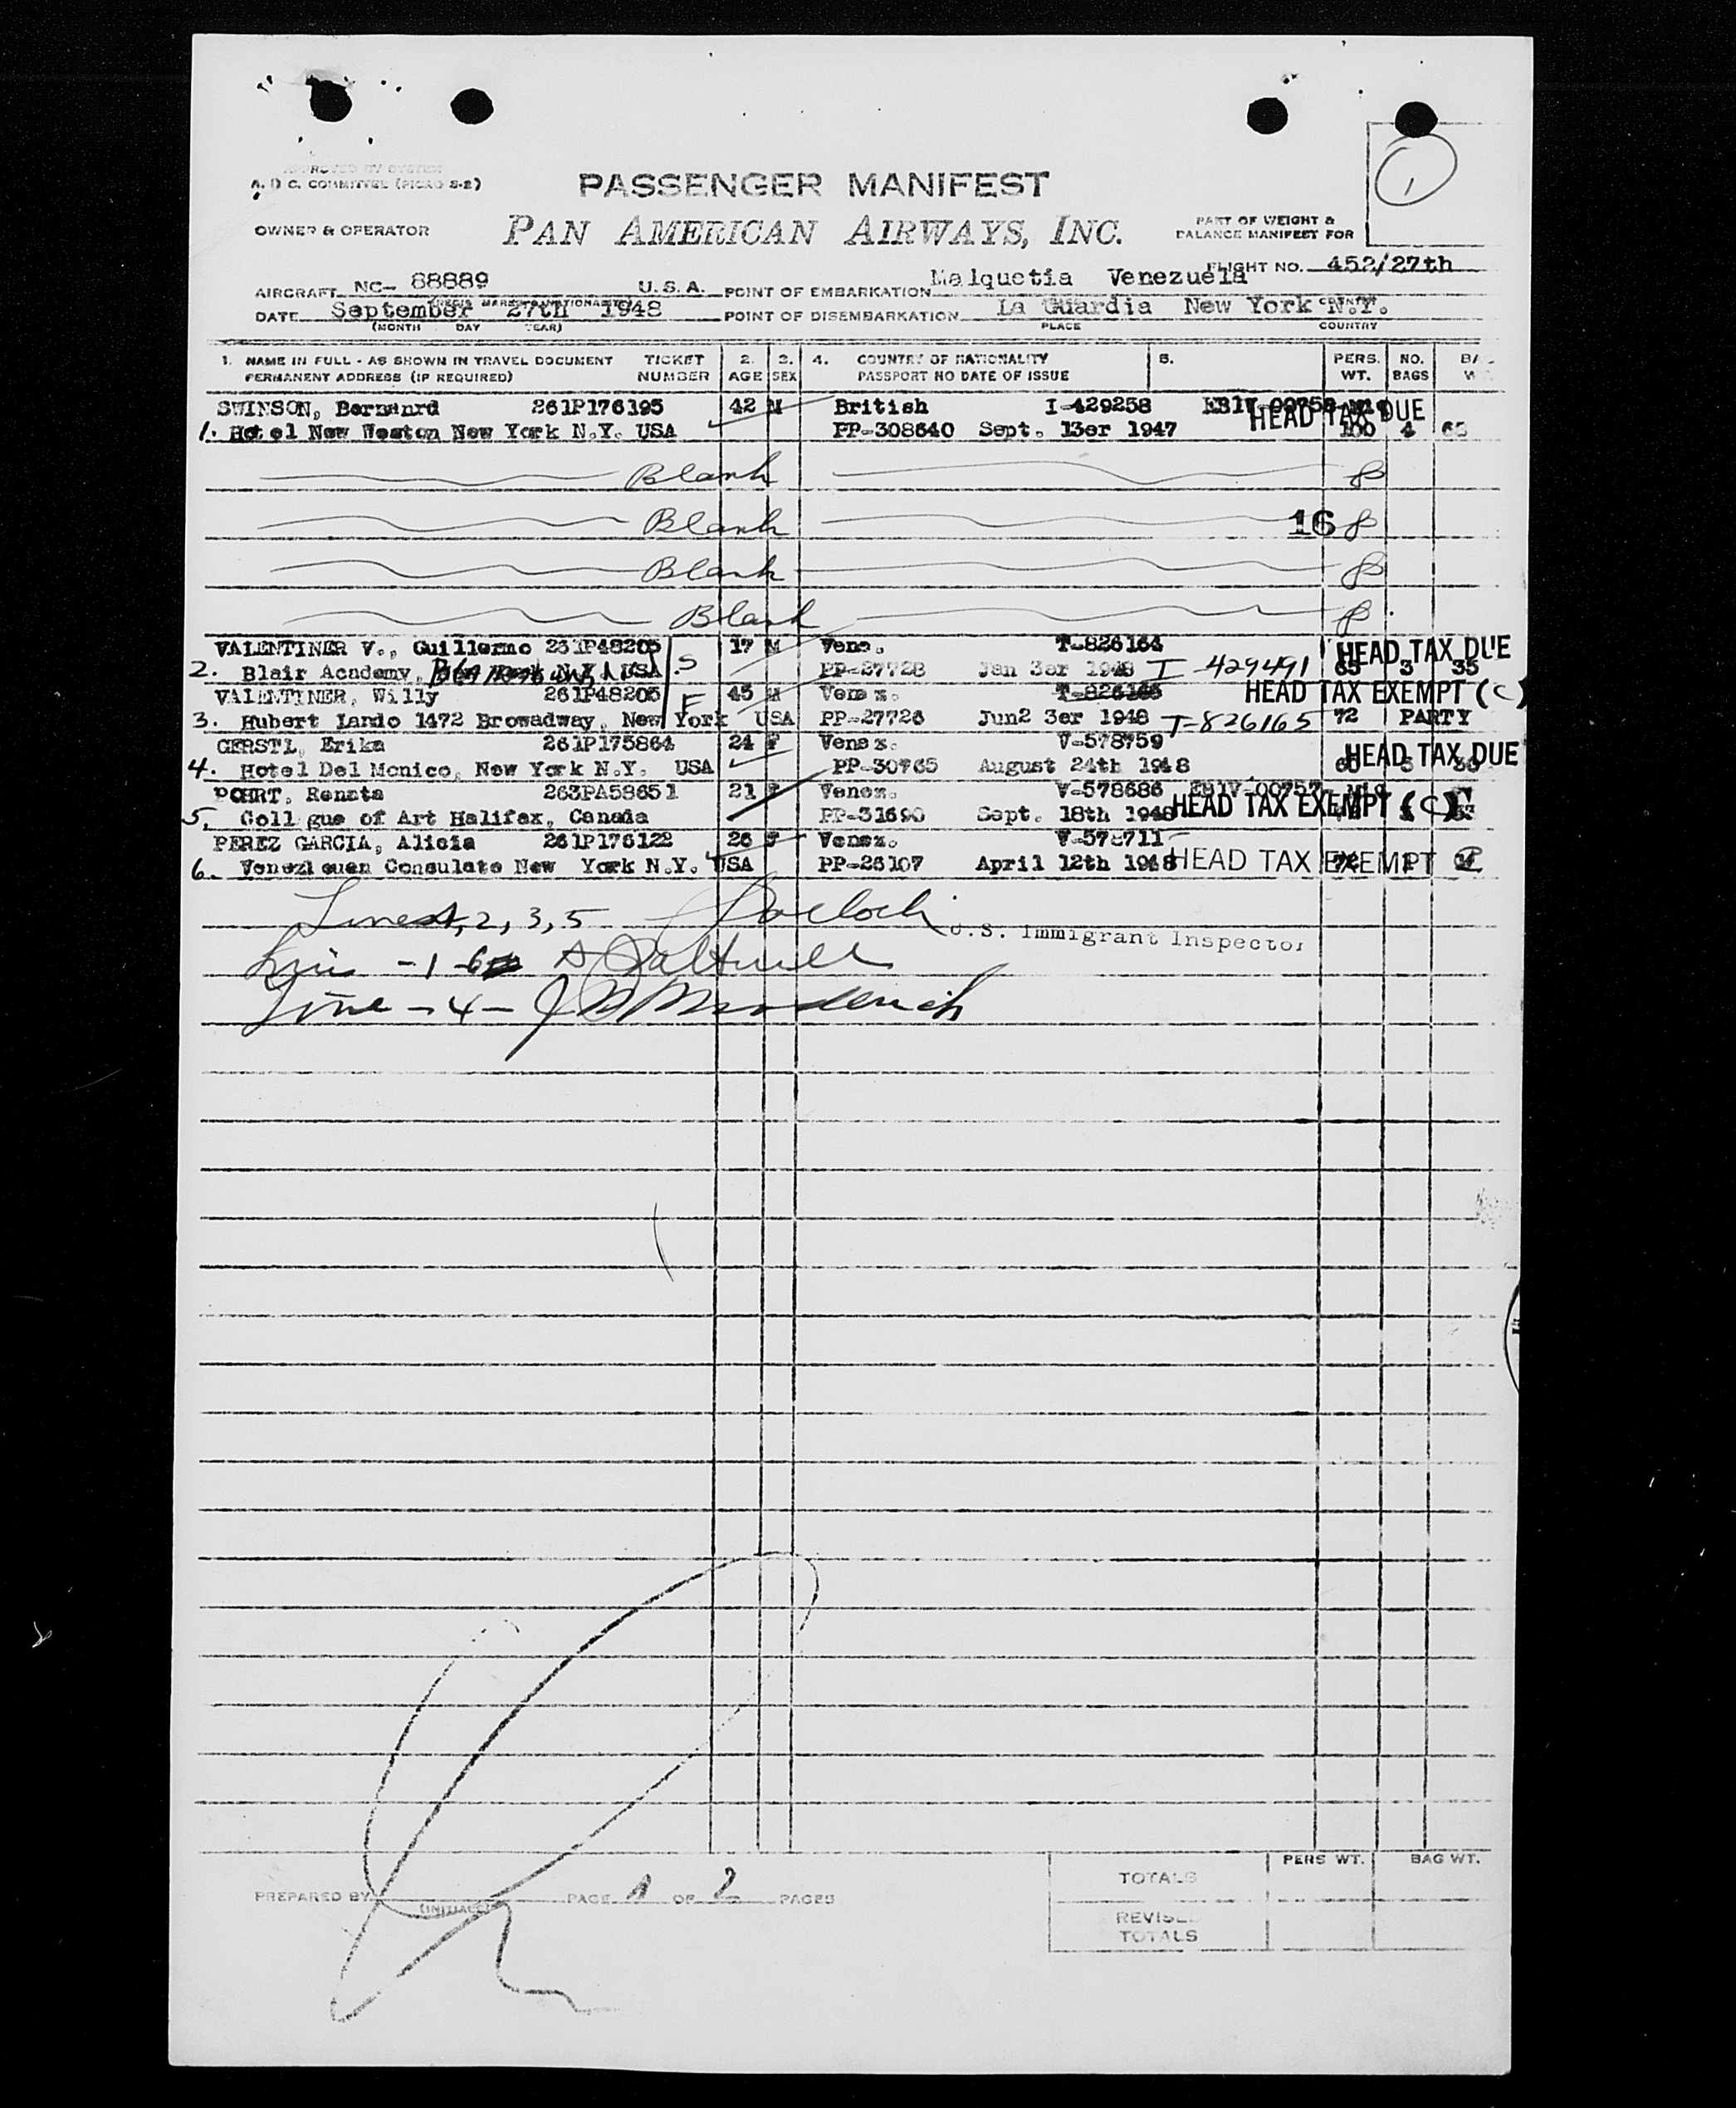 A. D C. COMMITTEE (PICAO S-2)
PASSENGER MANIFEST
1
OWNER & OPERATOR
PAN AMERICAN AIRWAYS, INC.
PART OF WEIGHT &
BALANCE MANIFEST FOR
FLIGHT NO. 452/27th
AIRCRAFT NC- 88889 U.S.A. POINT OF EMBARKATION Maiquetia Venezuela
DATE September 27th 1948 POINT OF DISEMBARKATION La Guardia New York N.Y.
(MONTH DAY YEAR) PLACE COUNTRY
1. NAME IN FULL - AS SHOWN IN TRAVEL DOCUMENT TICKET 2. 3. 4. COUNTRY OF NATIONALITY 5. PERS. NO.
PERMANENT ADDRESS (IF REQUIRED) NUMBER AGE SEX PASSPORT NO DATE OF ISSUE WT. BAGS
SWINSON, Bernanrd 261P176195 42 M British I-429258 HEAD TAX DUE
1. Hotel New Weston New York N.Y. USA PP-308640 Sept. 13er 1947 100 4
Blank
Blank 16
Blank
Blank
VALENTINER V., Guillermo 261P48205 17 M Vene. T-826164 HEAD TAX DUE
2. Blair Academy, USA S PP-27728 Jan 3er 1948 I-429491 65 3 35
VALENTINER, Willy 261P48205 F 45 M Venez. HEAD TAX EXEMPT (C)
3. Hubert Lando 1472 Browadway, New York USA PP-27726 Jun2 3er 1948 T-826165 72 PARTY
GERSTL, Erika 261P175864 24 F Venez. V-578759 HEAD TAX DUE
4. Hotel Del Monico, New York N.Y. USA PP-30765 August 24th 1948
POHRT, Renata 263PA58651 21 F Venez. V-578686
5. Coll gue of Art Halifax, Canada PP-31690 Sept. 18th 1948 HEAD TAX EXEMPT (C)
PEREZ GARCIA, Alicia 261P176122 26 F Venez.
6. Venezleuen Consulate New York N.Y. USA PP-26107 April 12th 1948 HEAD TAX EXEMPT
2, 3, 5
U.S. Immigrant Inspector
Line - 1 - 6
Line - 4 -
PREPARED BY (INITIALS) PAGE 1 OF 2 PAGES
PERS WT. BAG WT.
TOTALS
TOTALS